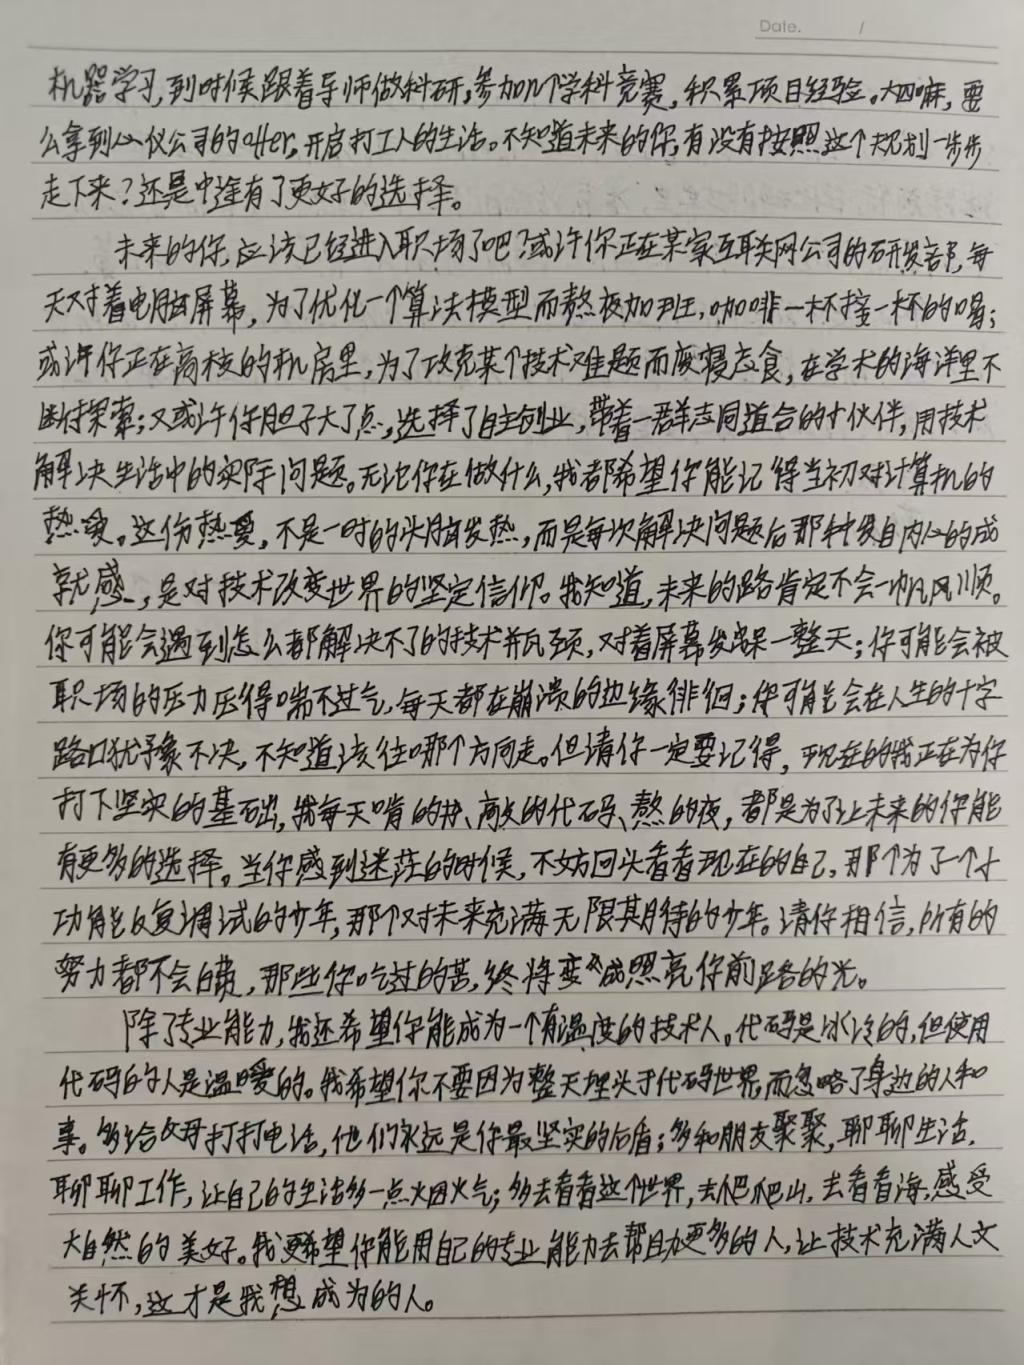 Date. /
机器学习,到时候跟着导师做科研,参加几个学科竞赛,积累项目经验。大四嘛,要
么拿到心仪公司的offer,开启打工人的生活。不知道未来的你,有没有按照这个规划一步步
走下来?还是中途有了更好的选择。
未来的你,应该已经进入职场了吧?或许你正在某家互联网公司的研发部,每
天对着电脑屏幕,为了优化一个算法模型而熬夜加班,咖啡一杯接一杯的喝;
或许你正在高校的机房里,为了攻克某个技术难题而废寝忘食,在学术的海洋里不
断探索;又或许你胆子大了点,选择了自主创业,带着一群志同道合的小伙伴,用技术
解决生活中的实际问题。无论你在做什么,我都希望你能记得当初对计算机的
热爱。这份热爱,不是一时的头脑发热,而是每次解决问题后那种发自内心的成
就感,是对技术改变世界的坚定信仰。我知道,未来的路肯定不会一帆风顺。
你可能会遇到怎么都解决不了的技术瓶颈,对着屏幕发呆一整天;你可能会被
职场的压力压得喘不过气,每天都在崩溃的边缘徘徊;你可能会在人生的十字
路口犹豫不决,不知道该往哪个方向走。但请你一定要记得,现在的我正在为你
打下坚实的基础,我每天啃的书、敲的代码、熬的夜,都是为了让未来的你能
有更多的选择。当你感到迷茫的时候,不妨回头看看现在的自己,那个为了一个小
功能反复调试的少年,那个对未来充满无限期待的少年。请你相信,所有的
努力都不会白费,那些你吃过的苦,终将变成照亮你前路的光。
除了专业能力,我还希望你能成为一个有温度的技术人。代码是冰冷的,但使用
代码的人是温暖的。我希望你不要因为整天埋头于代码世界,而忽略了身边的人和
事。多给父母打打电话,他们永远是你最坚实的后盾;多和朋友聚聚,聊聊生活,
聊聊工作,让自己的生活多一点烟火气;多去看看这个世界,去爬爬山,去看看海,感受
大自然的美好。我更希望你能用自己的专业能力去帮助更多的人,让技术充满人文
关怀,这才是我想成为的人。